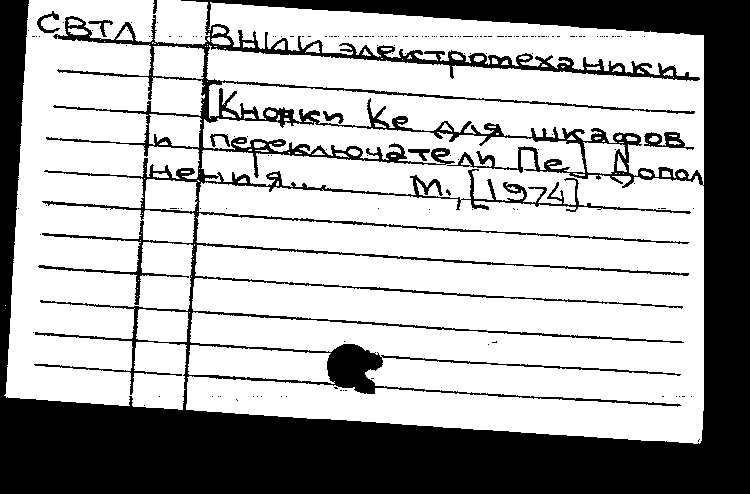 СВТЛ ВНИИ электромеханики.
[Кнопки Ке для шкафов
и переключатели Пе]. Допол
нения... М., [1974].